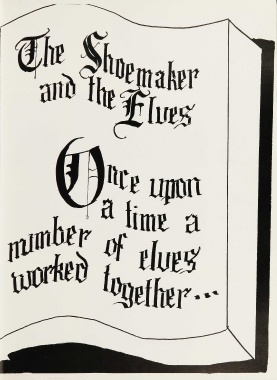 The Shoemaker
and the Elves
Once upon
a time a
number of elves
worked together...